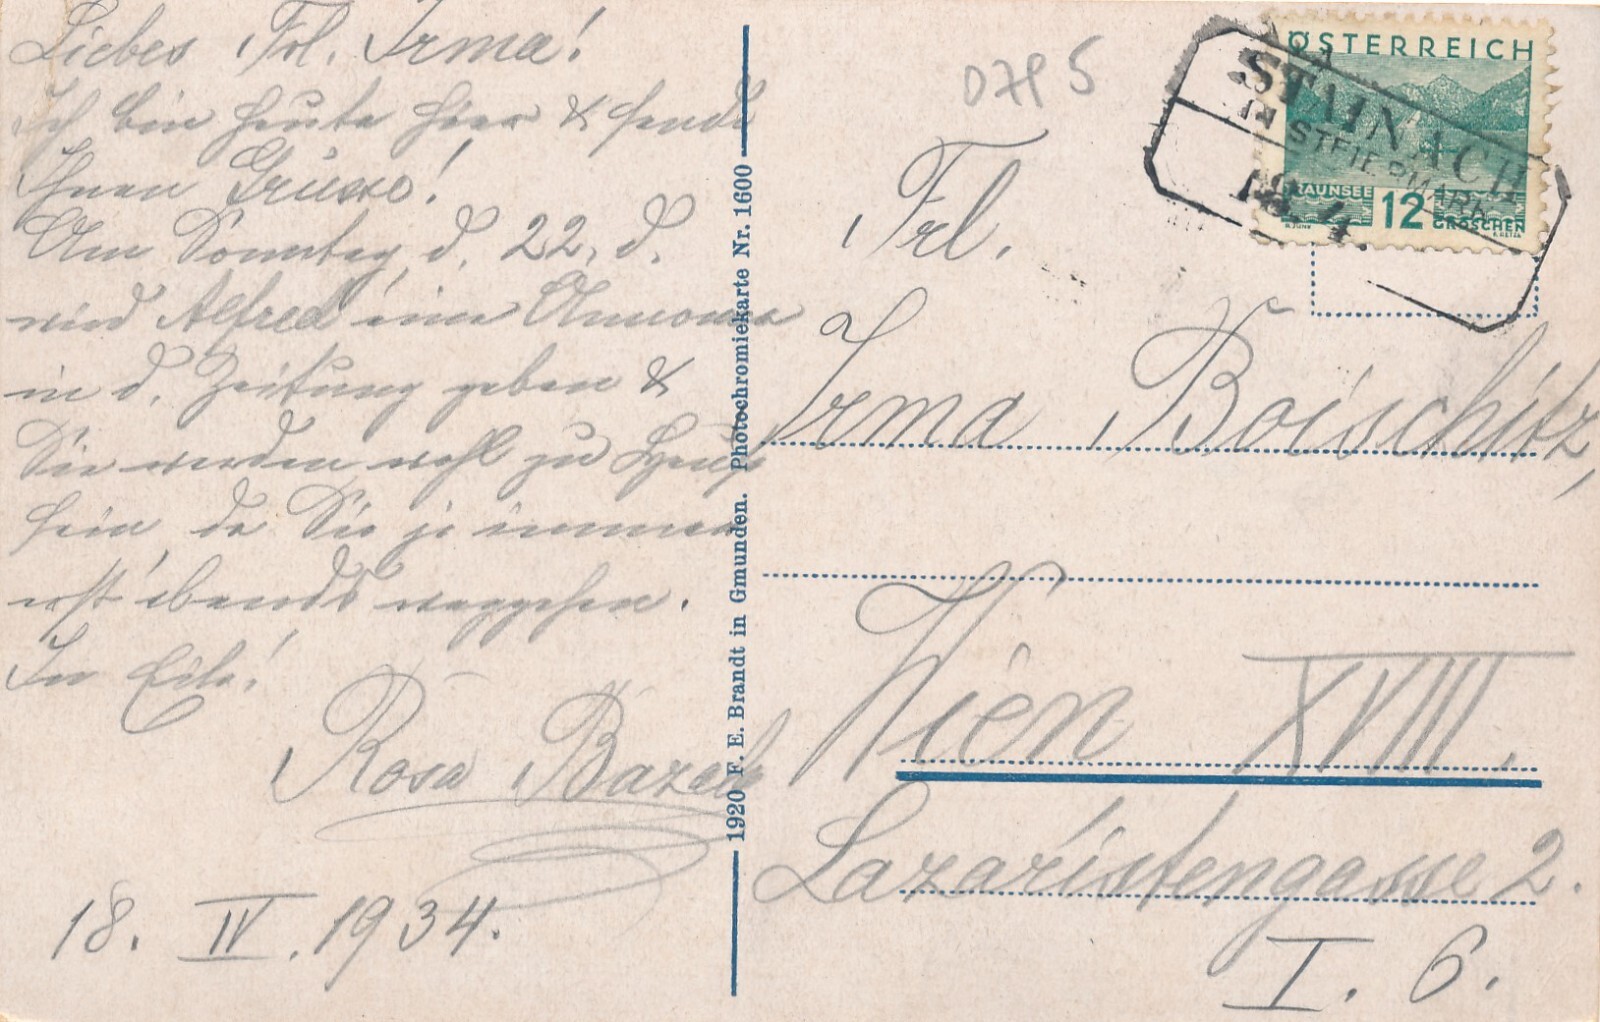 Liebes Frl. Irma!
Ich bin heute hier & sende
Ihnen Grüsse!
Am Sonntag, d. 22. d.
wird Alfred eine Annonce
in d. Zeitung geben &
Sie werden wohl zu Haus
sein, da Sie je immer
erst abends weggehen.
In Eile!
Rosa
18. IV. 1934.
1920 F. E. Brandt in Gmunden. Photochromiekarte Nr. 1600
ÖSTERREICH
TRAUNSEE 12 GROSCHEN
STAINACH
IN STEIERMARK
18. 4.
Frl.
Irma Boischitz,
Wien XVIII.
Lazaristengasse 2.
I. 6.